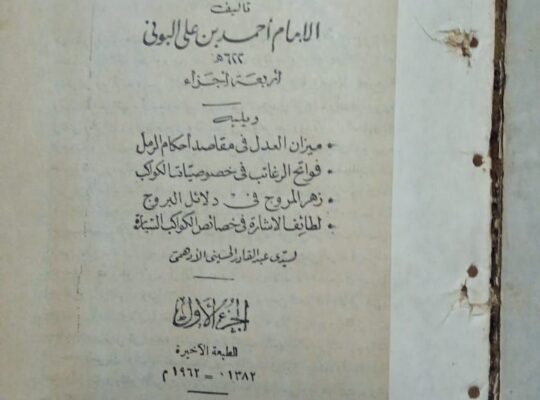 تأليف
الإمام أحمد بن على البونى
٦٢٢هـ
أربعة أجزاء
ويليه
• ميزان العدل فى مقاصد أحكام الرمل
• فواتح الرغائب فى خصوصيات الكواكب
• زهر المروج فى دلائل البروج
• لطائف الإشارة فى خصائص الكواكب السيارة
لسيدى عبد القادر الحسينى الأدهمى
الجزء الأول
الطبعة الأخيرة
١٣٨٢ هـ = ١٩٦٢ م